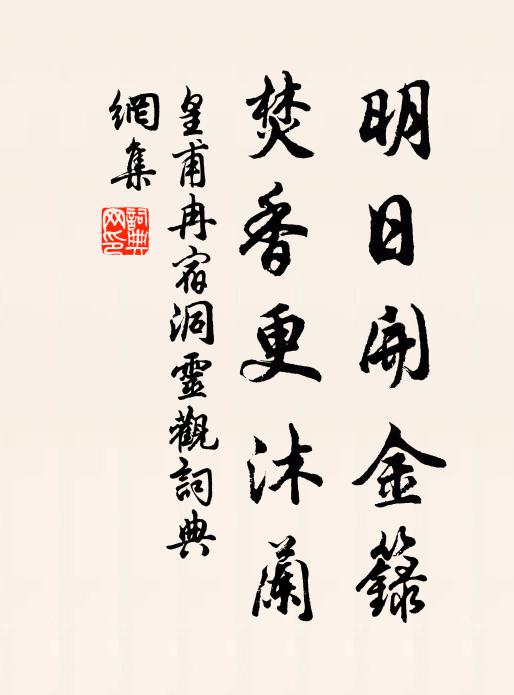 明日開金籙
焚香更沐蘭
皇甫冉宿洞靈觀詞典
網集
詞典網印